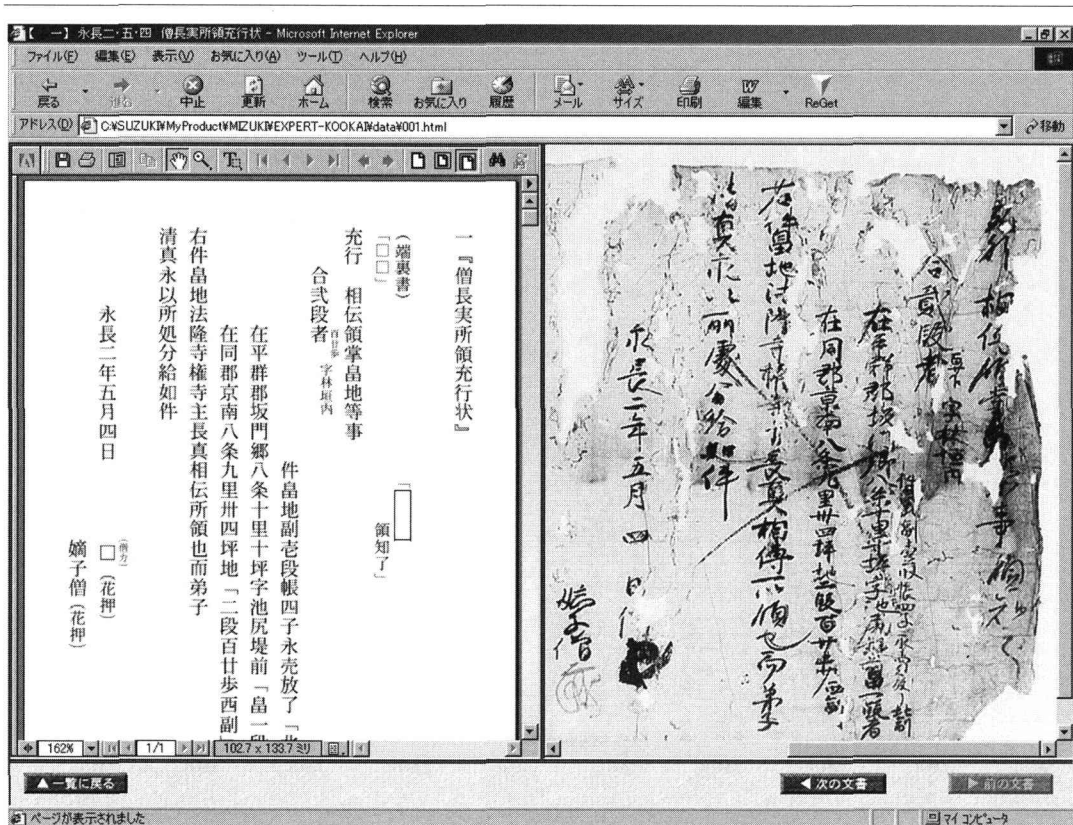 【 一】永長二・五・四 僧長実所領充行状 - Microsoft Internet Explorer
ファイル(F) 編集(E) 表示(V) お気に入り(A) ツール(T) ヘルプ(H)
戻る 進む 中止 更新 ホーム 検索 お気に入り 履歴 メール サイズ 印刷 編集 ReGet
アドレス(D) C:¥SUZUKI¥MyProduct¥MIZUKI¥EXPERT-KOOKAI¥data¥001.html 移動
一『僧長実所領充行状』
(端裏書)
「□□」
「 領知了」
充行 相伝領掌畠地等事
合弐段者 百廿歩 字林垣内
件畠地副壱段帳四子永売放了「
在平群郡坂門郷八条十里十坪字池尻堤前「畠一段
在同郡京南八条九里卅四坪地「二段百廿歩西副
右件畠地法隆寺権寺主長真相伝所領也而弟子
清真永以所処分給如件
永長二年五月四日
□(花押)
嫡子僧(花押)
合貳段者
字林垣内
在同郡京南八条九里卅四坪地貳段百廿歩西副
右件畠地法隆寺権寺主長真相傳所領也而弟子
清真永以所處分給如件
永長二年五月四日
嫡子僧
162% 1/1 102.7 x 133.7 ミリ
▲一覧に戻る ◀次の文書 ▶前の文書
ページが表示されました マイ コンピュータ